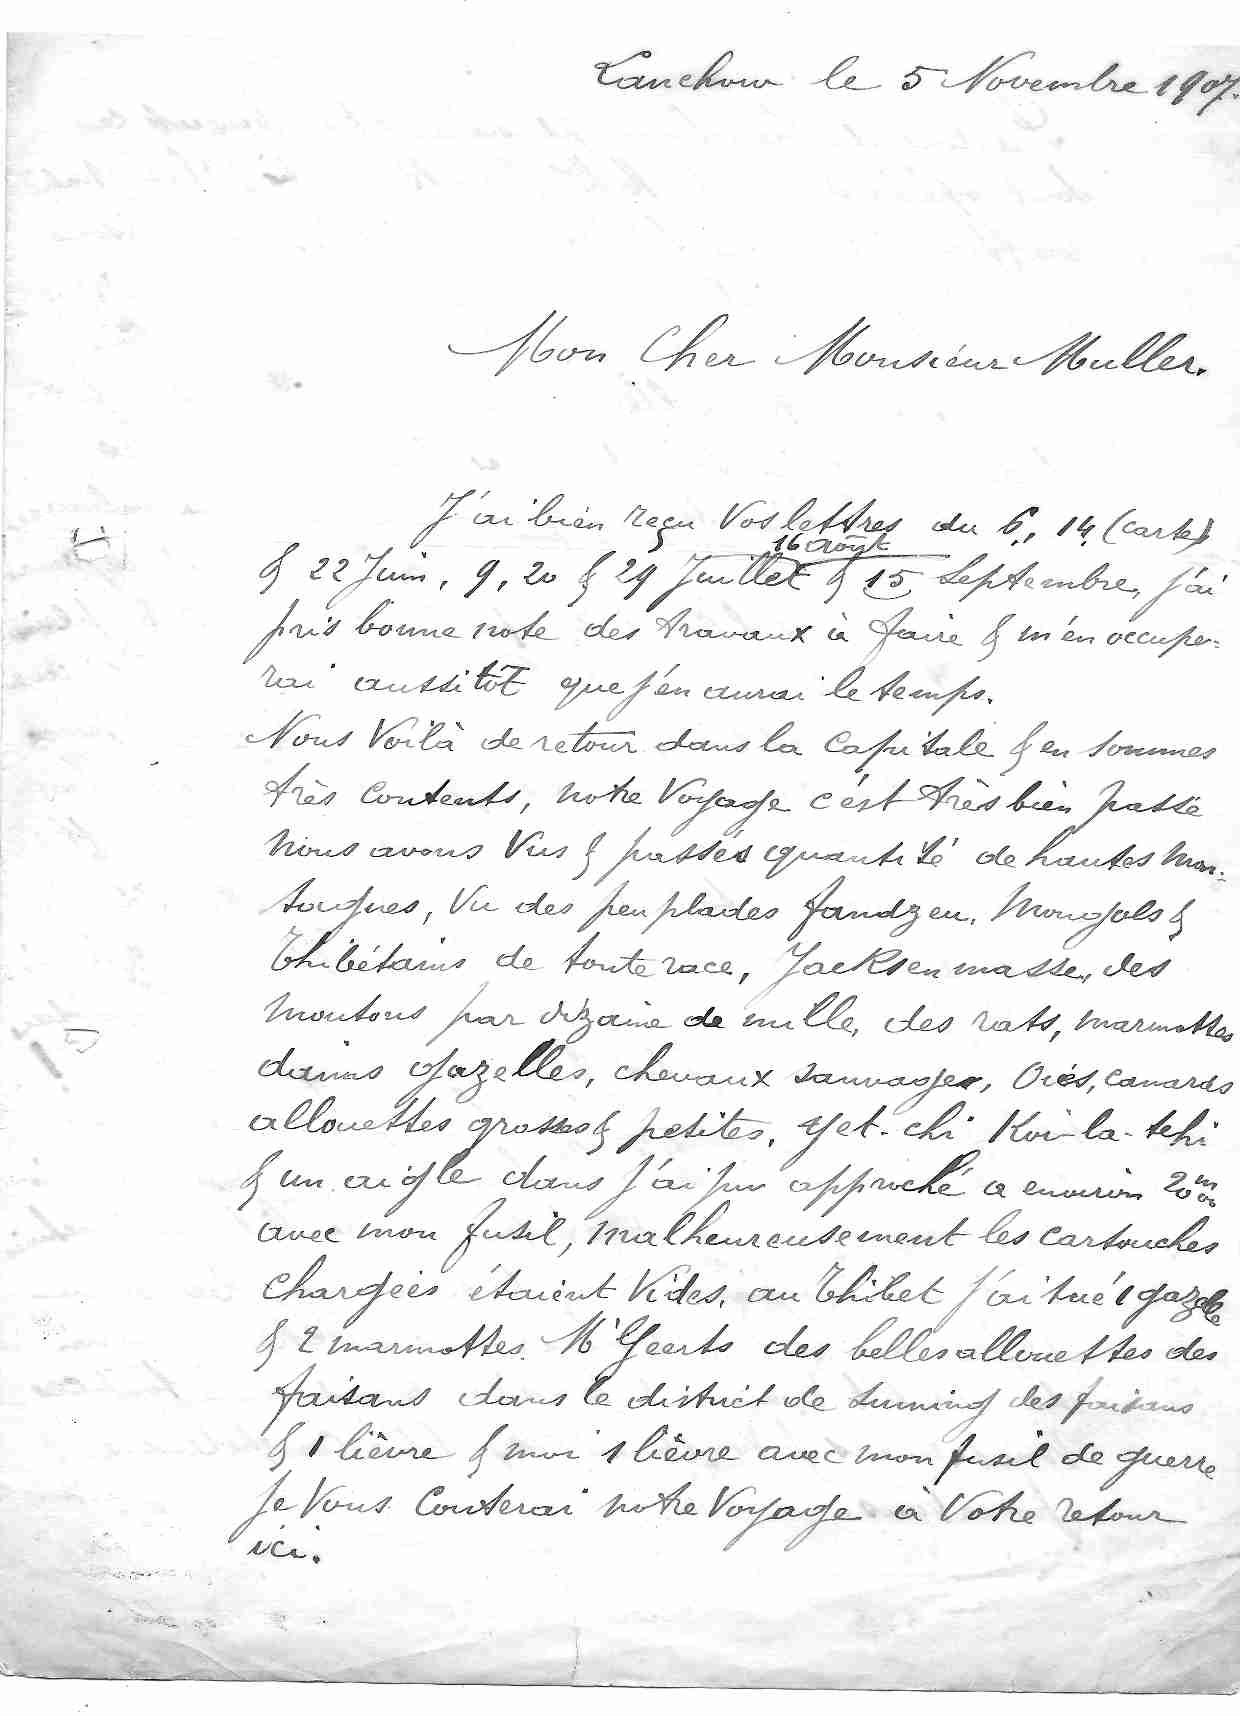 Lanchow le 5 Novembre 1907.
Mon Cher Monsieur Muller.
J'ai bien reçu Vos lettres du 6, 14 (carte)
16 août
& 22 Juin, 9, 20 & 29 Juillet & 15 Septembre, j'ai
pris bonne note des travaux à faire & m'en occupe-
rai aussitôt que j'en aurai le temps.
Nous Voilà de retour dans la Capitale & en sommes
très Contents, notre Voyage c'est très bien passé
nous avons Vus & passés quantité de hautes Mon-
tagnes, Vu des peuplades fandzeu, Mongols &
Thibétains de toute race, Jacks en masse, des
moutons par dizaine de mille, des rats, marmottes
daims gazelles, chevaux sauvages, Oies, canards
allouettes grosses & petites, Yet-chi Koi-la-tchi
& un aigle dans j'ai pu approché a environ 20m00
avec mon fusil, malheureusement les cartouches
chargées étaient Vides, au Thibet j'ai tué 1 gazelle
& 2 marmottes. Mr Geerts des belles allouettes des
faisans dans le district de Suning des faisans
& 1 lièvre & moi 1 lièvre avec mon fusil de guerre
je Vous Conterai notre Voyage à Votre retour
ici.